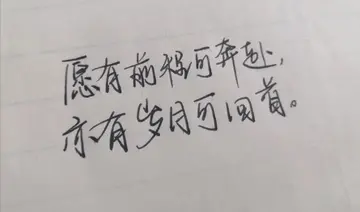 愿有前程可奔赴，
亦有岁月可回首。